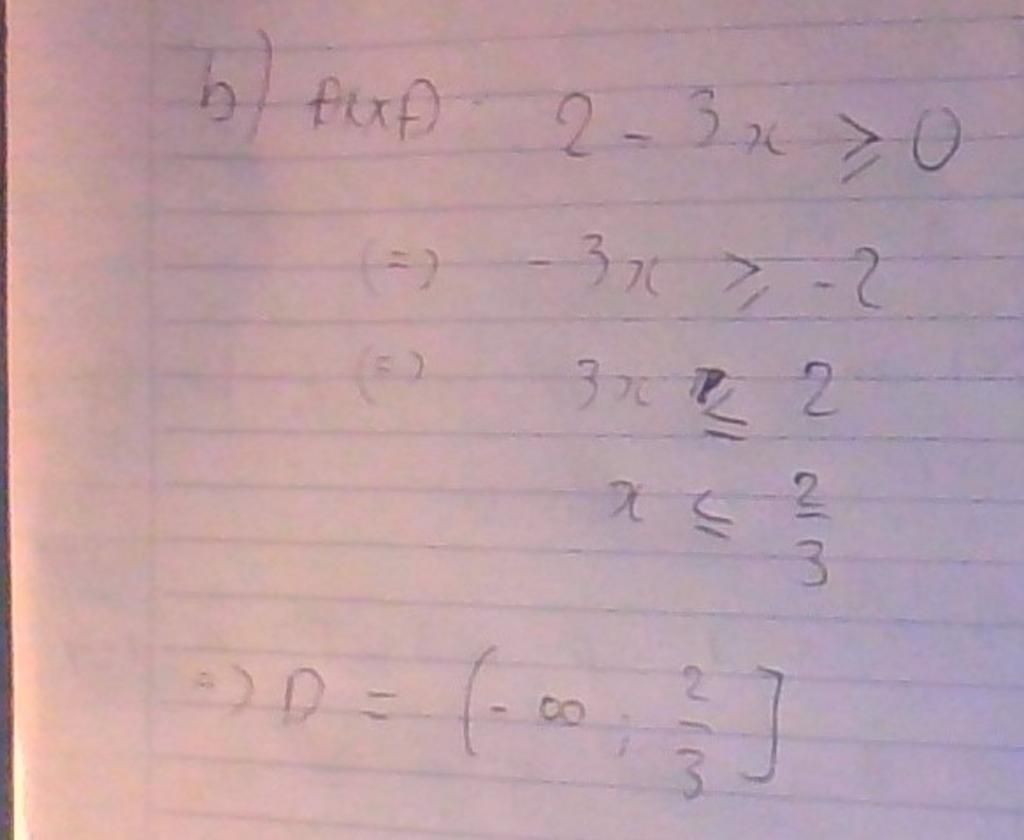 b) 2 - 3x ⩾ 0
(=) - 3x ⩾ - 2
(=) 3x ≤ 2
x ≤ 2/3
=) D = (- ∞ ; 2/3]